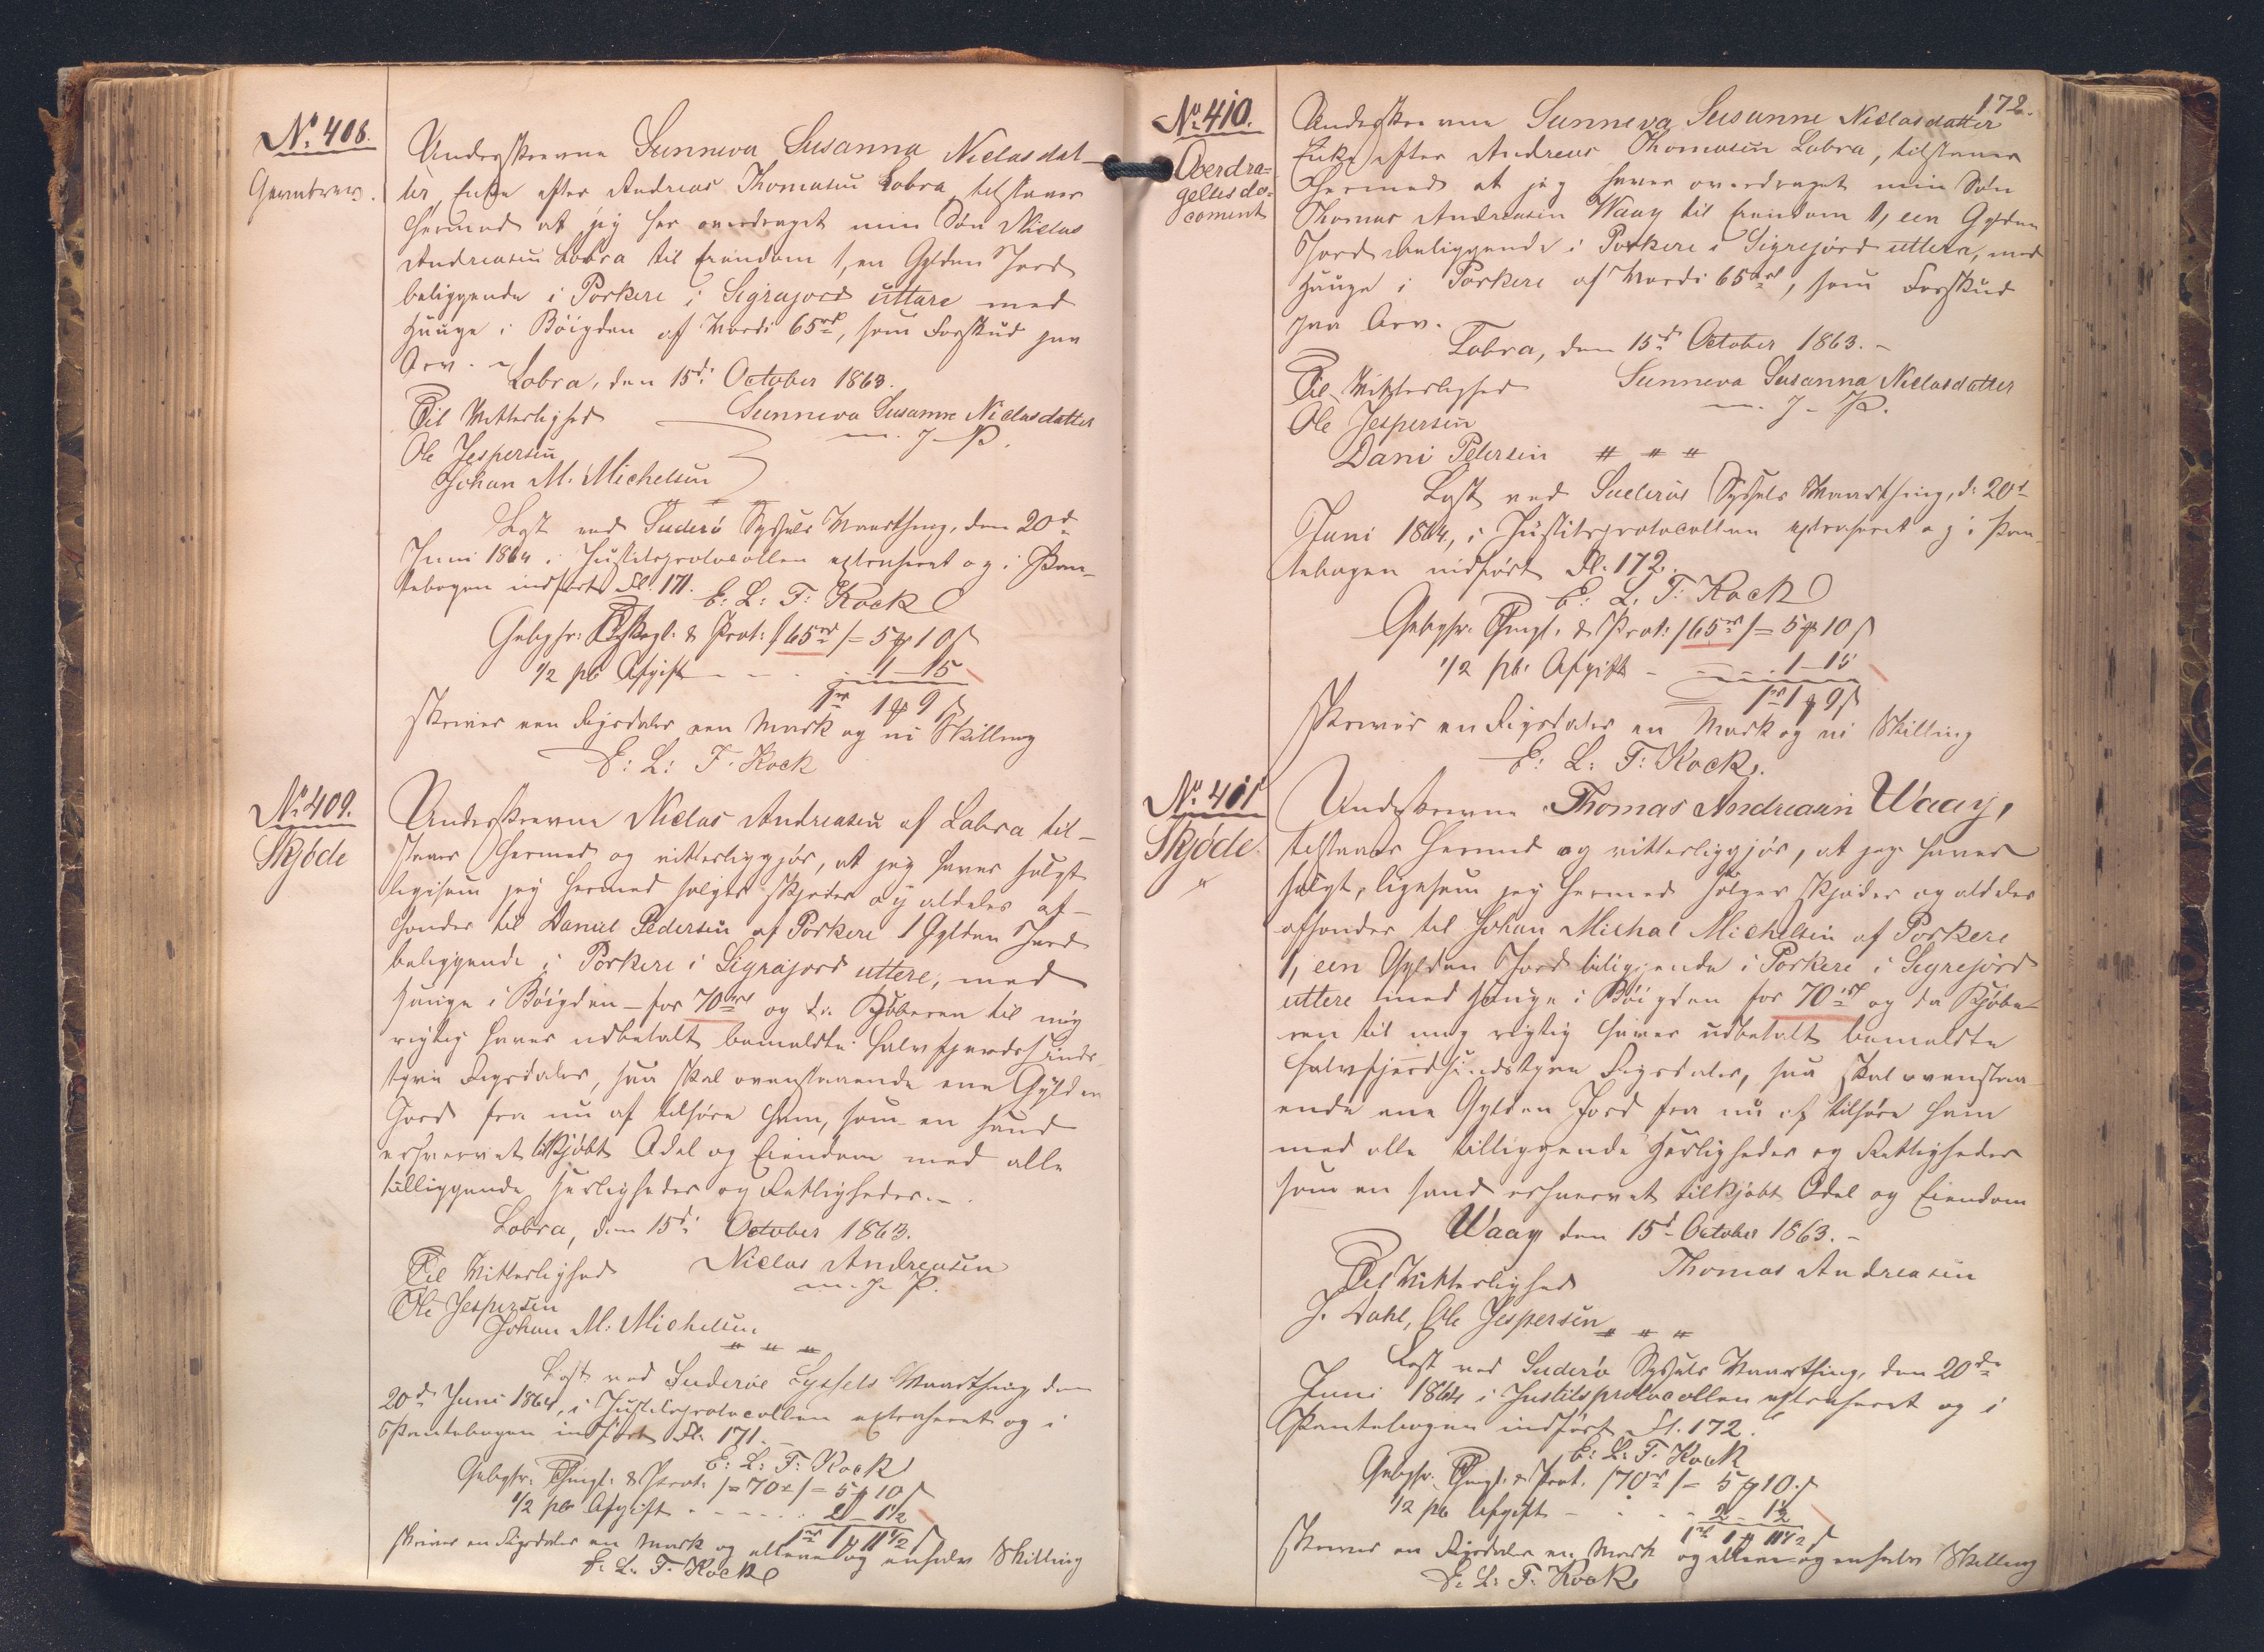 No. 408.
Underskrevne Sunneva Susanna Niclasdat-
ter, Enke efter Andreas Thomasen Lobra, tilstaaer
hermed at jeg har overdraget min Søn Niclas
Andreasen Lobra til Eiendom 1, en Gylden Jord
beliggende i Porkere i Sigrajord uttare med
Hauge i Böigden af Værdi 65rd, som Forskud paa
Arv. -
Lobra, den 15d: October 1863.
Til Vitterlighed Sunneva Susanne Niclasdatter
m. f. P.
Ole Jespersen
Johan M. Michelsen
Læst ved Suderö Syssels Vaarthing, den 20d
Juni 1864, i Justitsprotocollen extraheret og i Pan-
tebogen indført Fl. 171.
E: L: F: Kock
Gebyhr: & Prot: /65rd/ = 5 # 10 s
1/2 pC Afgift - - - 1 - 15
1rd 1 # 9 s
skriver een Rigsdaler een Mark og ni Skilling
E: L: F. Kock
No. 409.
Skjöde
Underskrevne Niclas Andreasen af Lobra til-
staaer hermed og vitterliggjør, at jeg haver solgt
ligesom jeg hermed sælger skjøder og aldeles af-
hender til Daniel Pedersen af Porkere 1 Gylden Jord
beliggende i Porkere i Sigrajord uttere, med
Hauge i Böigden - for 70rd og da Kjøberen til mig
rigtig haver udbetalt bemeldte halvfjerdsinds-
tyve Rigsdaler, saa skal ovenstaaende ene Gylden
Jord fra nu af tilhøre ham, som en sand
erhvervet tilkjøbt Odel og Eiendom med alle
tilliggende Herligheder og Rettigheder. -
Lobra, den 15d: October 1863.
Til Vitterlighed Niclas Andreasen
m. f. P.
Ole Jespersen
Johan M. Michelsen
" " "
Læst ved Suderöe Syssels Vaarthing den
20d Juni 1864, i Justitsprotocollen extraheret og i
Pantebogen indført Fl. 171.
E: L: F: Kock
Gebyhr: Thingl. & Prot: /70rd/ = 5 # 10 s
1/2 pC Afgift - - - 2 - 1 1/2
1rd 1 # 11 1/2 s
skriver en Rigsdaler en Mark og elleve og enhalv Skilling
E: L: F. Kock
172.
No. 410.
Overdra-
gelsesdo-
coment
Underskrevne Sunneva Susanne Niclasdatter
Enke efter Andreas Thomasen Lobra, tilstaaer
hermed at jeg haver overdraget min Søn
Thomas Andreasen Waag til Eiendom 1, een Gylden
Jord beliggende i Porkere i Sigrejörd uttera, med
Hauge i Porkere af Værdi 65rd, som Forskud
paa Arv.
Lobra, den 15d October 1863. -
Til Vitterlighed Sunneva Susanna Niclasdatter
m. f. P.
Ole Jespersen
Dani Petersen " " "
Læst ved Suderöe Syssels Vaarthing, d: 20d
Juni 1864, i Justitsprotocollen extraheret og i Pan-
tebogen indført Fl. 172.
E: L: F: Kock
Gebyhr. Thingl. & Prot: /65rd/ = 5 # 10 s
1/2 pC. Afgift - - - 1 - 15
1rd 1 # 9 s
skriver en Rigsdaler en Mark og ni Skilling
E: L: F: Kock.
No. 411
Skjöde
"
Underskrevne Thomas Andreasen Waag,
tilstaaer hermed og vitterliggjør, at jeg haver
solgt, ligesom jeg hermed sælger skjøder og aldeles
afhender til Johan Michal Michelsen af Porkere
1, een Gylden Jord beliggende i Porkere i Sigrejörd
uttere med Hauge i Böigden for 70rd og da Kjøbe-
ren til mig rigtig haver udbetalt bemeldte
halvfjerdsindstyve Rigsdaler, saa skal ovenstaa-
ende ene Gylden Jord fra nu af tilhøre ham
med alle tilliggende Herligheder og Rettigheder
som en sand erhvervet tilkjøbt Odel og Eiendom
Waag den 15d October 1863. -
Til Vitterlighed Thomas Andreasen
J. Dahl, Ole Jespersen " " "
Læst ved Suderö Syssels Vaarthing, den 20de
Juni 1864 i Justitsprotocollen extraheret og i
Pantebogen indført Fl. 172.
E: L: F. Kock
Gebyhr. Thingl. & Prot. /70rd/ = 5 # 10. s
1/2 pC Afgift - - - 2 - 1 1/2
1rd 1 # 11 1/2 s
skriver en Rigsdaler en Mark og elleve og enhalv Skilling
E: L: F. Kock